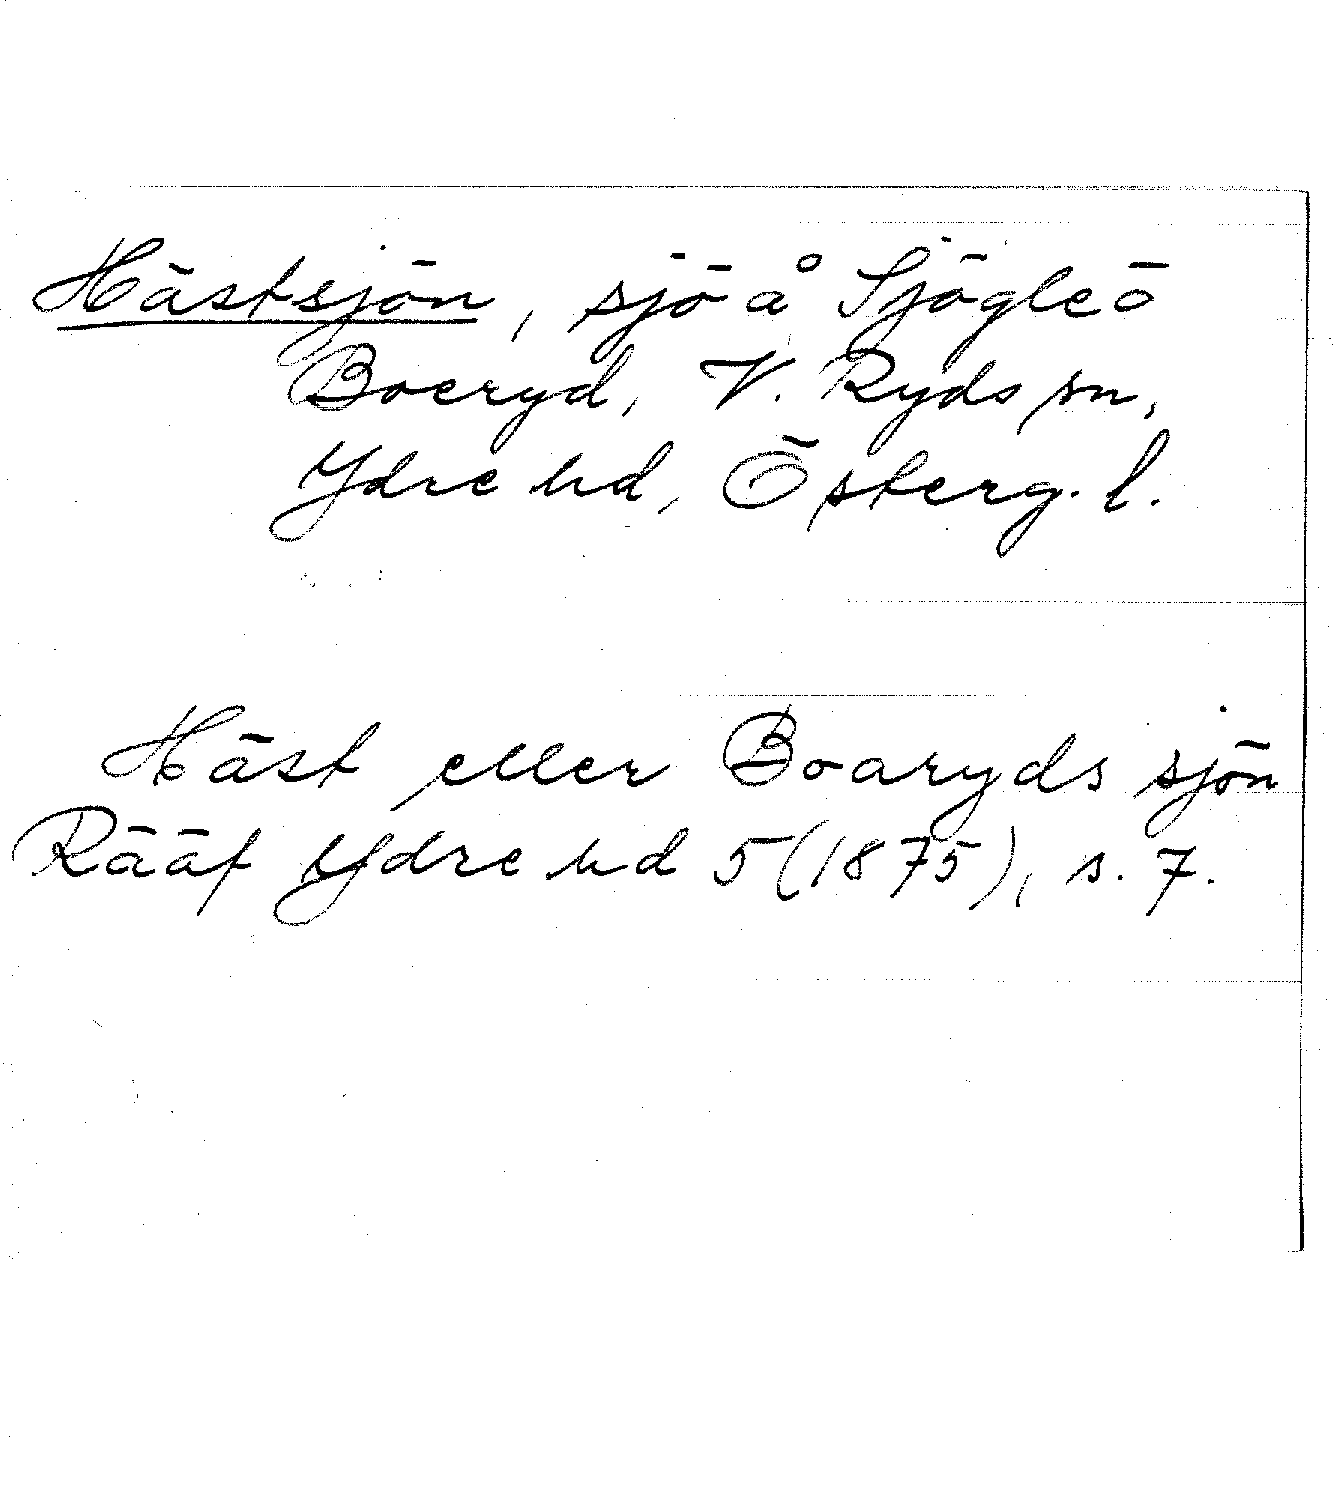 Hästsjön, sjö å Sjögleö
Boeryd, V. Ryds sn,
Ydre hd, Österg. l.
Häst eller Boaryds sjön
Rääf Ydre hd 5 (1875), s. 7.